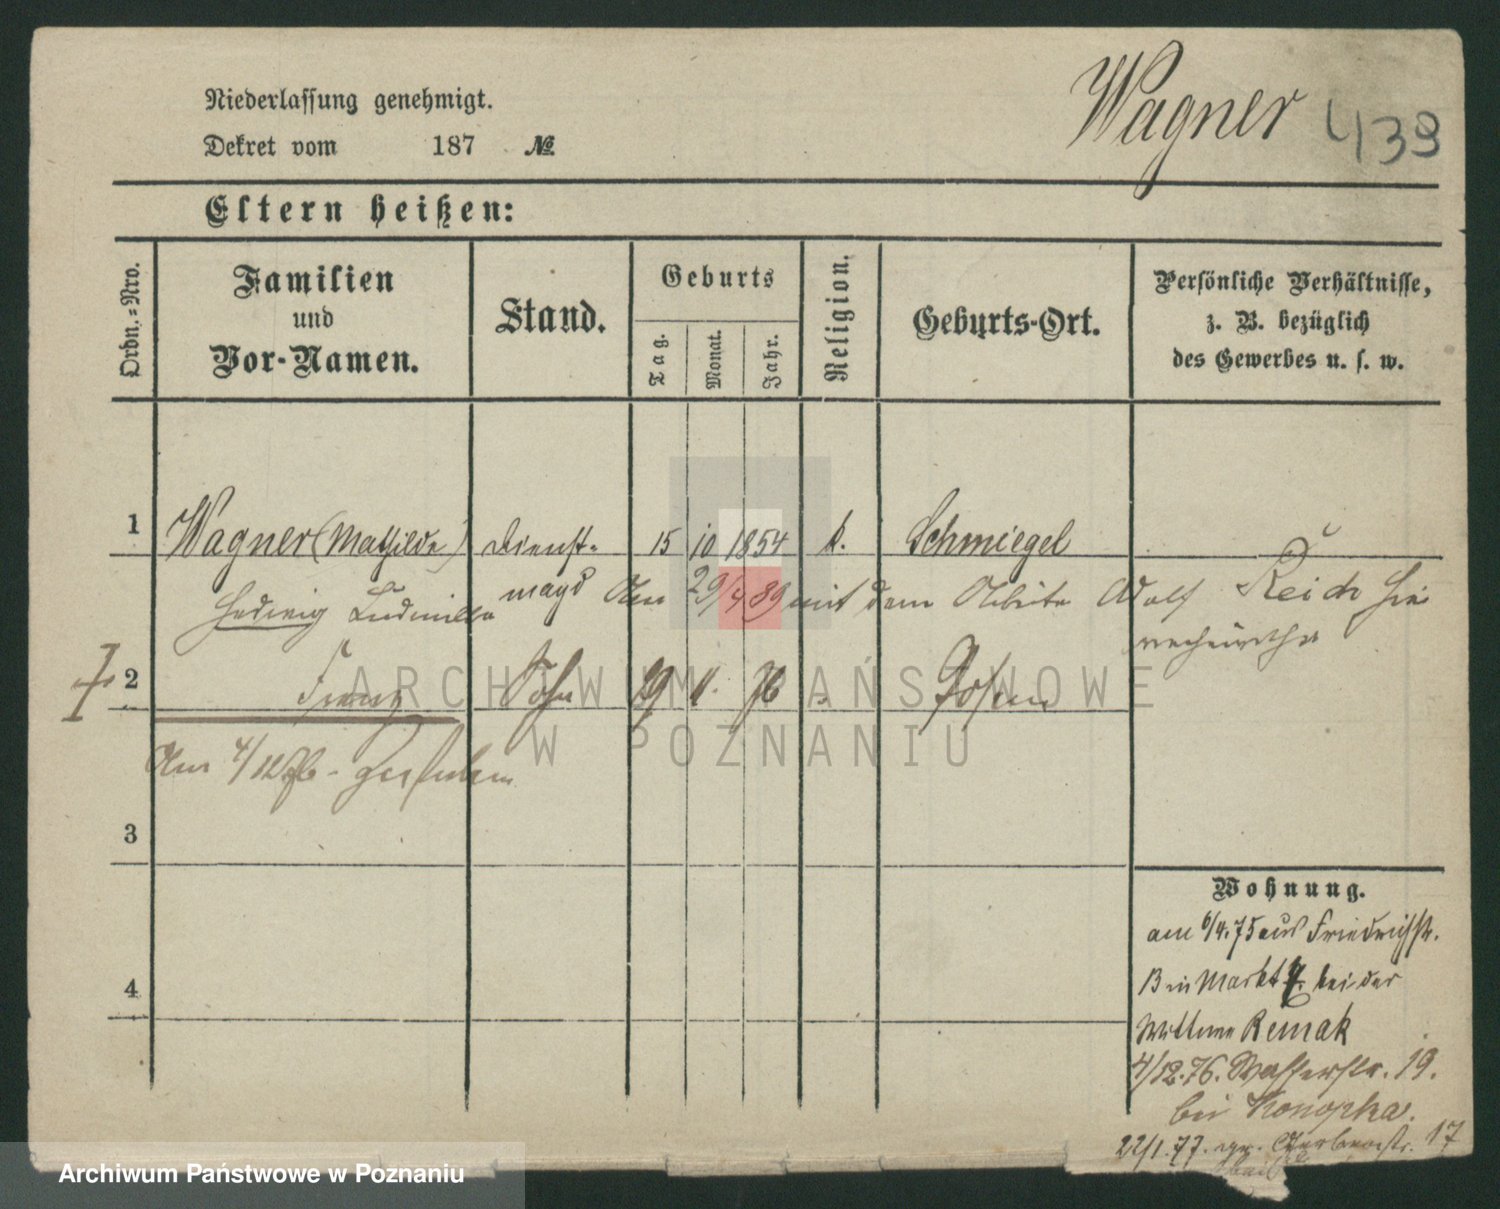 Niederlassung genehmigt.
Wagner 439
Dekret vom 187 №
Eltern heißen:
Ordn.-Nro.
Familien und Vor-Namen.
Stand.
Geburts
Tag. Monat. Jahr.
Religion.
Geburts-Ort.
Persönliche Verhältnisse,
z. B. bezüglich
des Gewerbes u. s. w.
1 Wagner (Mathilde) Dienst- 15 10 1854 k. Schmiegel
Hedwig Ludmilla magd Am 29/4 89 mit dem Adolf Reich hie
2 Franz Sohn 29 76 Posen
Am 4/12 76 - gestorben
3
4
Wohnung.
am 6/4.75 aus Friedrichstr.
13 in Markt 7. bei der
Wittwe Remak
4/12.76. Wasserstr. 19.
bei Konopka.
22/1.77. gr. Gerberstr. 17
ARCHIWUM PAŃSTWOWE
W POZNANIU
Archiwum Państwowe w Poznaniu